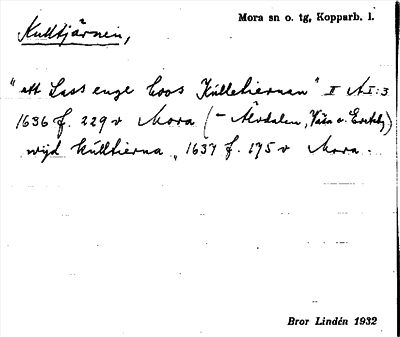 Kulltjärnen,
Mora sn o. tg, Kopparb. l.
"ett Lass enge hoos Külletiernan" I AI:3
1636 f. 229 v Mora (- Älvdalen, Våmh. o. Evertsb.)
wijd Külltierna", 1637 f. 175 v Mora.
Bror Lindén 1932